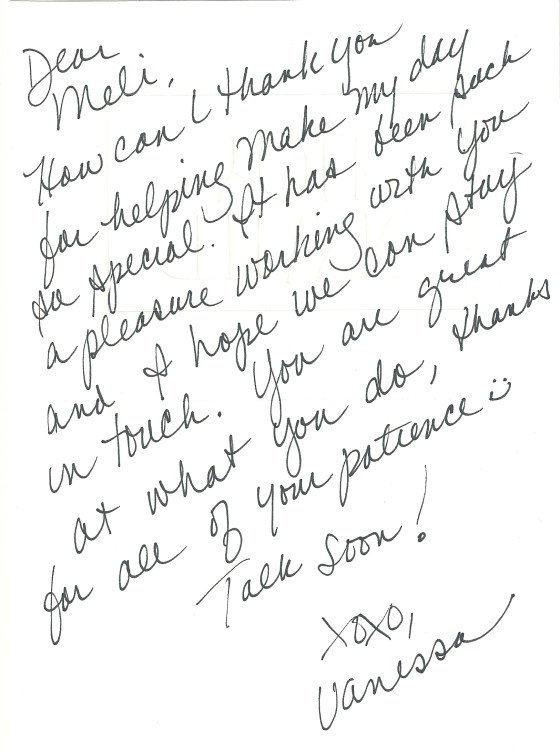 Dear
Meli,
How can I thank you
for helping make my day
so special! It has been such
a pleasure working with you
and I hope we can stay
in touch. You are great
at what you do, thanks
for all of your patience :)
Talk Soon!
XOXO,
Vanessa